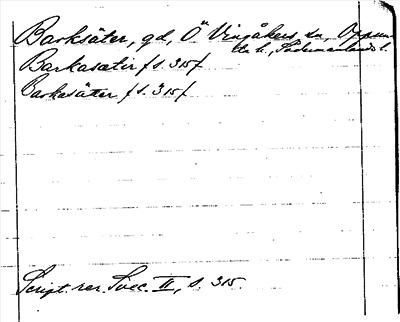 Barksäter, gd, Ö Vingåkers sn, Oppun
da h., Södermanlands l.
Barkasætir /s. 315/
Barkasätter /s. 315/
Script. rer. Svec. II, s. 315.